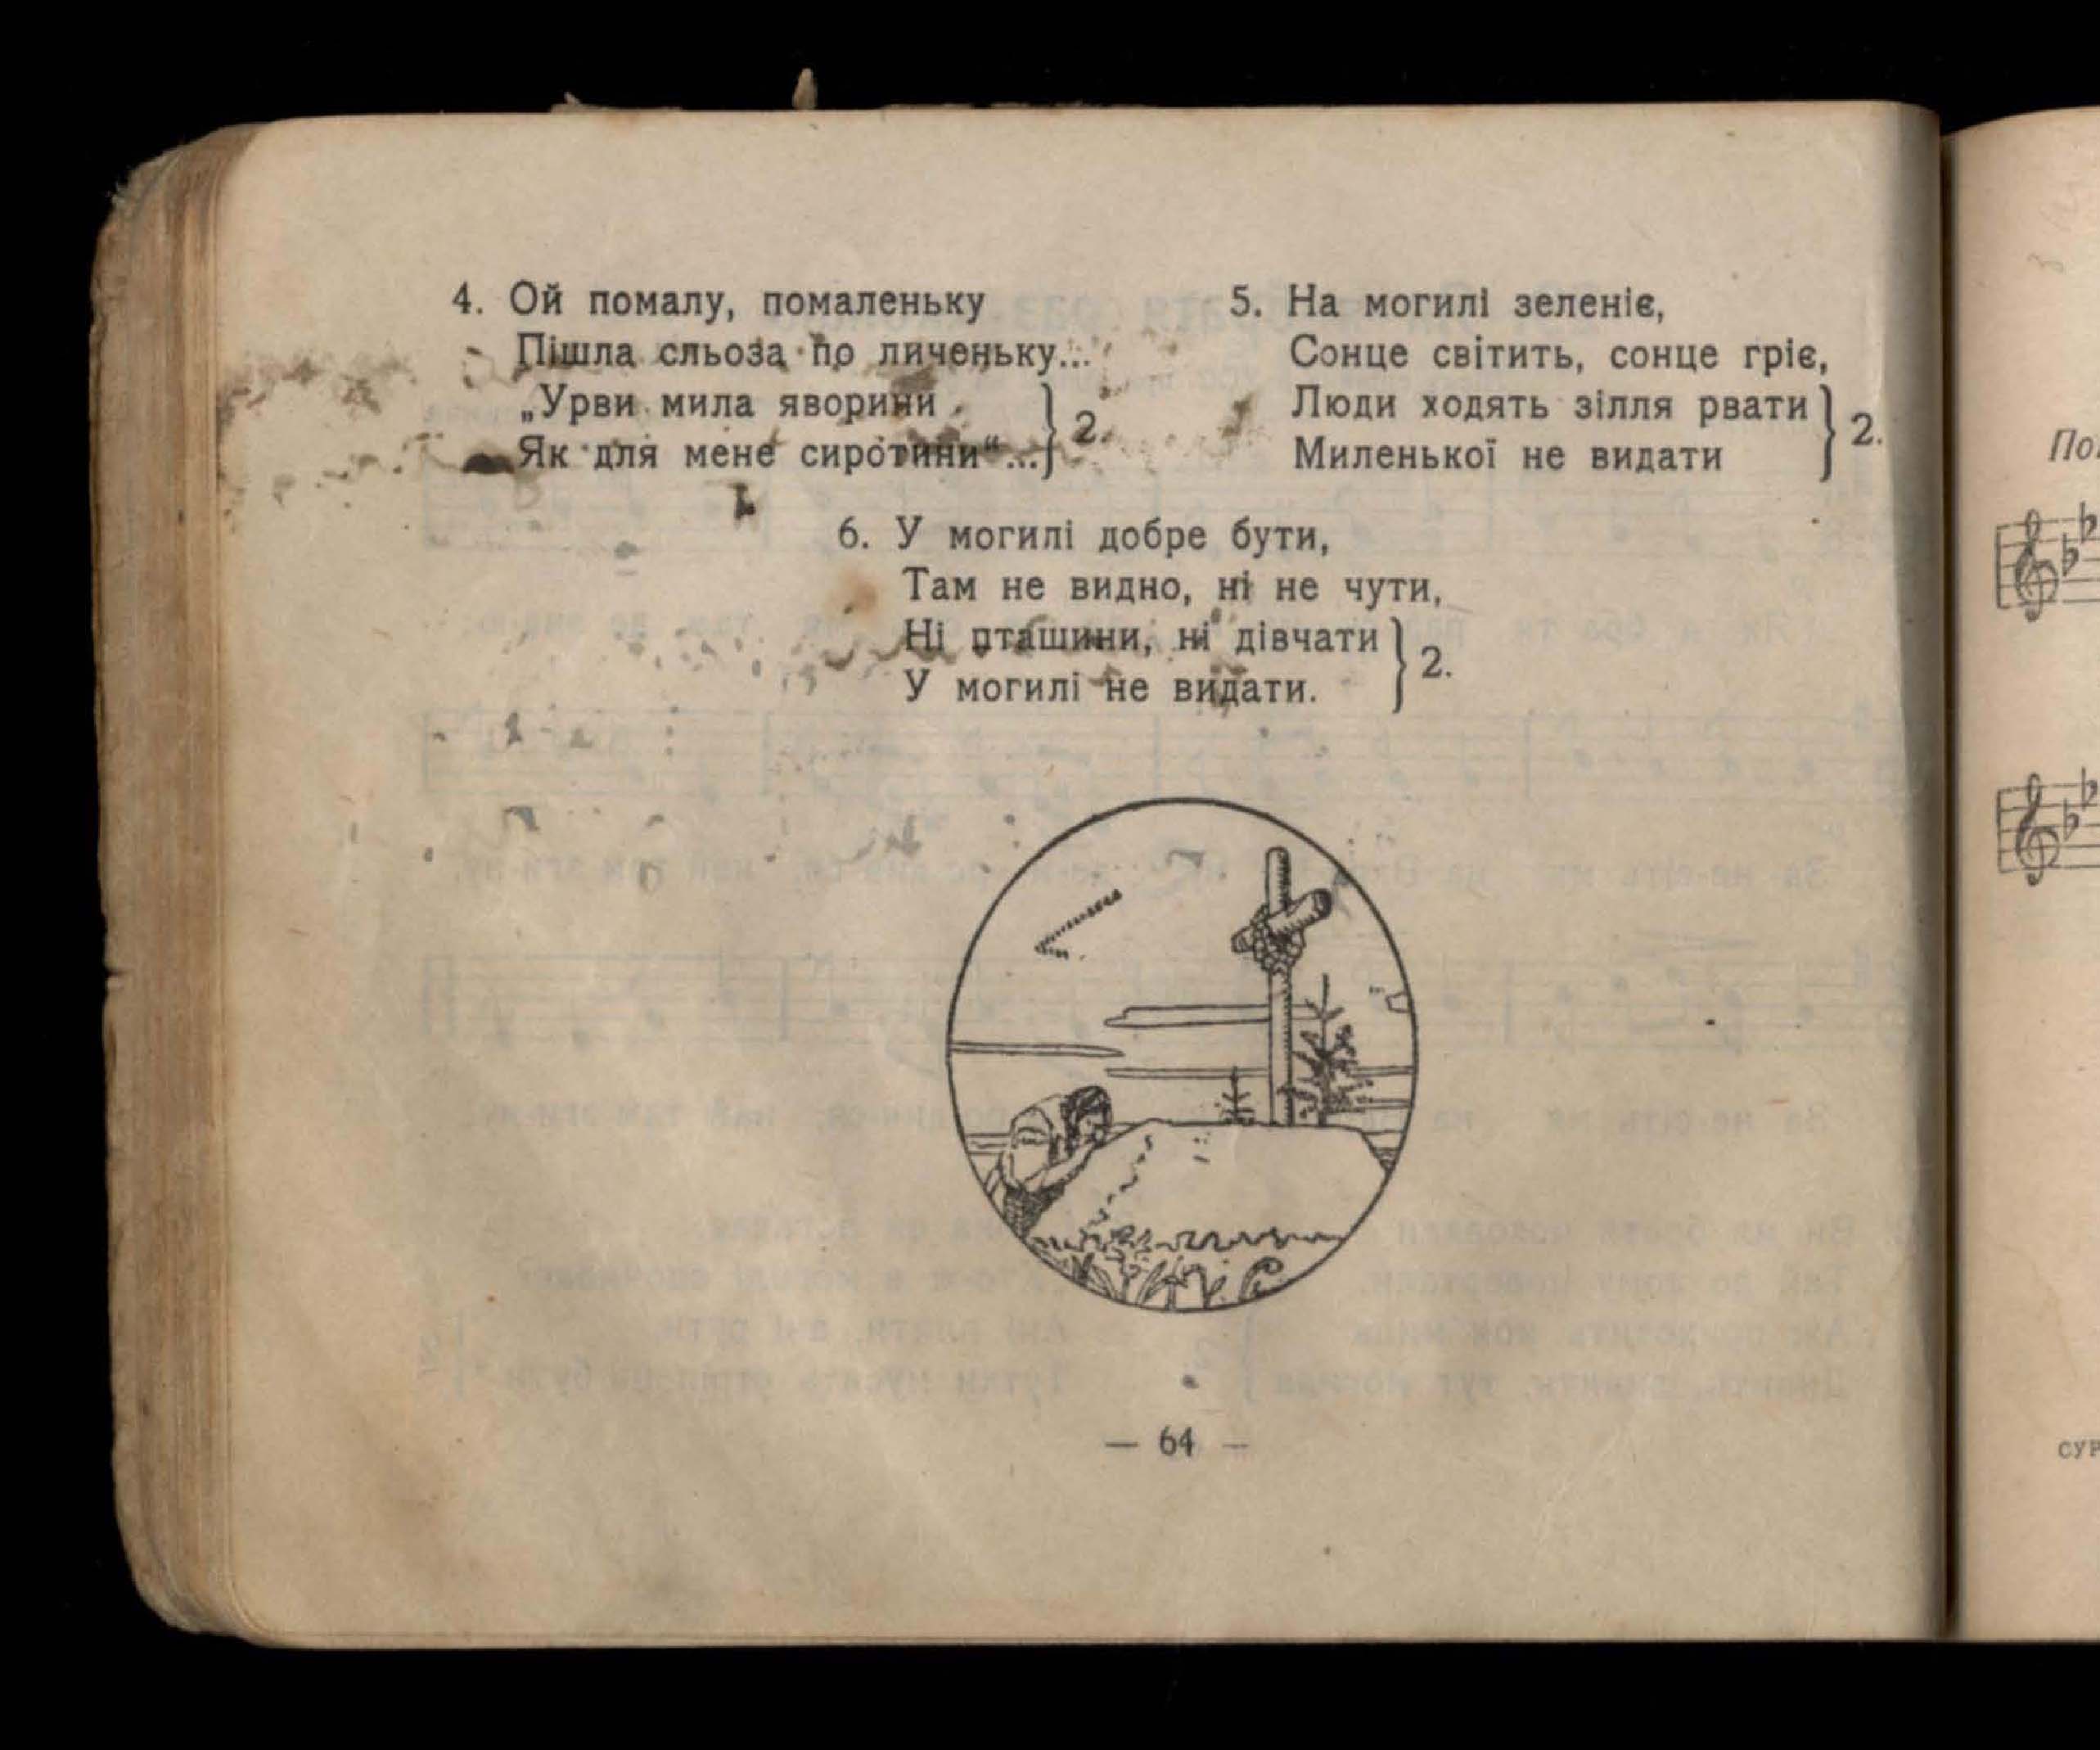 4. Ой помалу, помаленьку
Пішла сльоза по личеньку...
„Урви мила яворини
Як для мене сиротини“... } 2.
5. На могилі зеленіє,
Сонце світить, сонце гріє,
Люди ходять зілля рвати
Миленької не видати } 2.
6. У могилі добре бути,
Там не видно, ні не чути,
Ні пташини, ні дівчати
У могилі не видати. } 2.
— 64 —